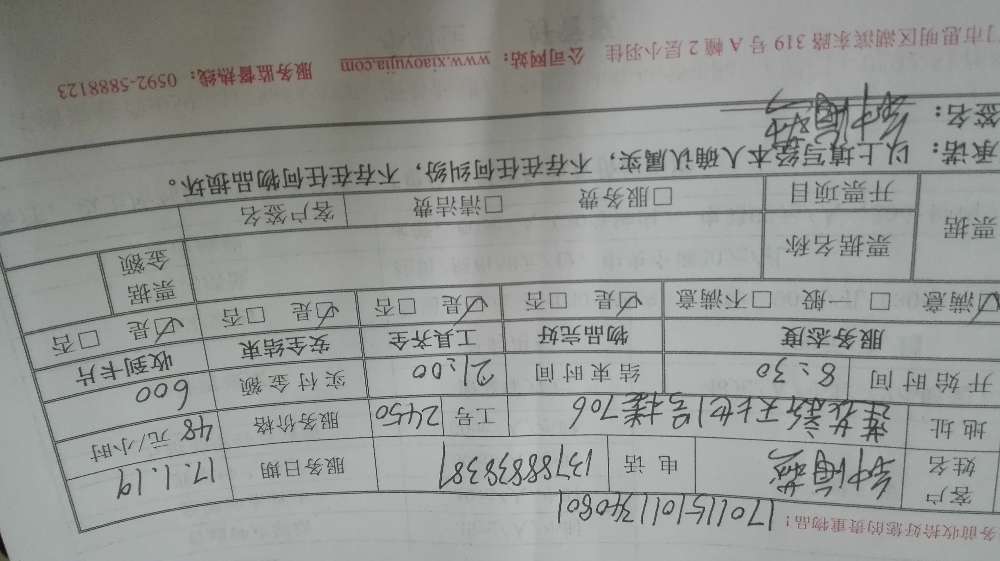 务前收拾好您的贵重物品！
170115101134080 1
客户姓名 电话 13788838387 服务日期 17.1.19
地址 莲花新天地1号楼706 工号 2450 服务价格 48 元/小时
开始时间 8:30 结束时间 21:00 实付金额 600
服务态度 物品完好 工具齐全 安全结束 收到卡片
☑满意 □一般 □不满意 ☑是 □否 ☑是 □否 ☑是 □否 ☑是 □否
票据 票据名称 票据金额
开票项目 □服务费 □清洁费 客户签名
承诺：以上填写经本人确认属实，不存在任何纠纷，不存在任何物品损坏。
签名：
门市思明区湖滨东路 319 号 A 幢 2 层小羽佳 公司网站：www.xiaoyujia.com 服务监督热线：0592-5888123